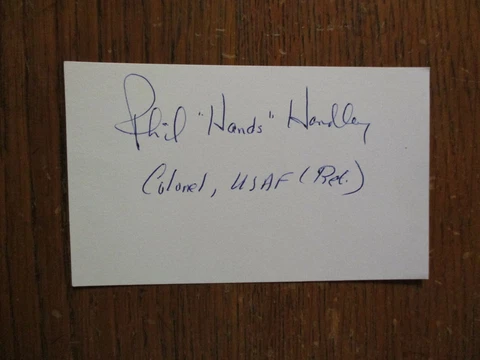 Phil "Hands" Handley
Colonel, USAF (Ret.)